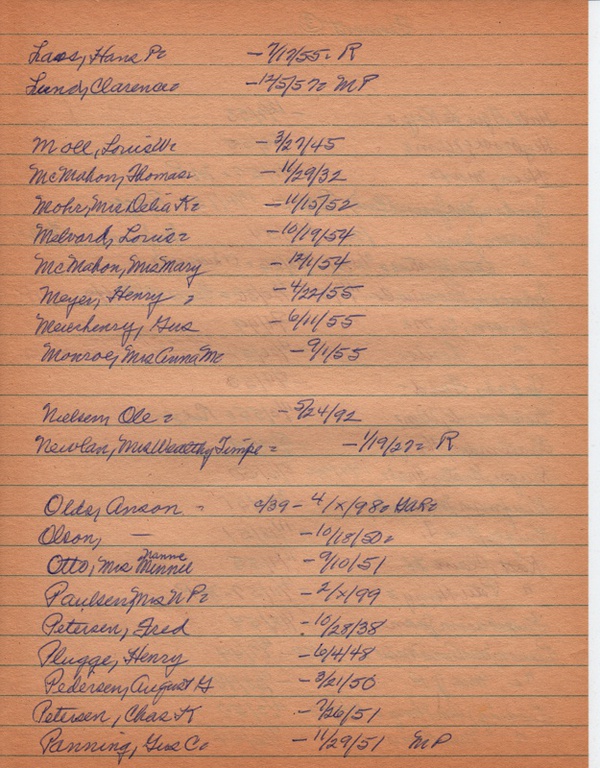 Laas, Hans P. - 7/17/55. R
Lund, Clarence. - 12/5/57. MP
Moll, Louis W. - 3/27/45
McMahon, Thomas. - 11/29/32
Mohr, Mrs Delia K. - 11/15/52
Melvard, Louis. - 10/19/54
McMahon, Mrs Mary - 12/1/54
Meyer, Henry, - 4/22/55
Meierhenry, Gus - 6/11/55
Monroe, Mrs Anna Mc - 9/1/55
Nielsen, Ole = - 5/24/92
Newlan, Mrs Wealthy Timpe = - 1/19/27= R
Olds, Anson - c/39 - 4/x/98. GAR.
Olson, — - 10/18/50.
Nannie
Otto, Mrs Minnie - 9/10/51
Paulsen, Mrs N P. - 2/x/99
Petersen, Fred - 10/28/38
Plugge, Henry - 6/4/48
Pedersen, August G - 3/21/50
Petersen, Chas K - 7/26/51
Panning, Gus C. - 11/29/51 MP